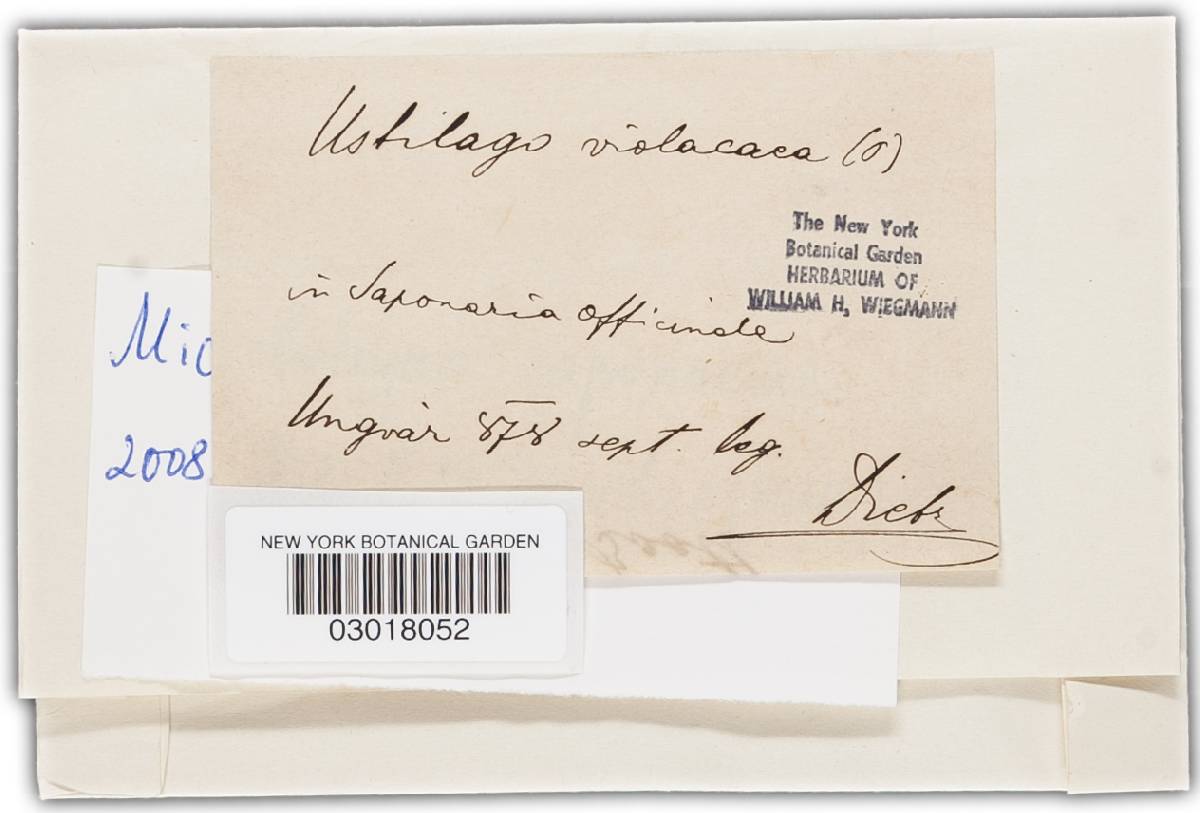 Ustilago violacaea (δ)
The New York
Botanical Garden
HERBARIUM OF
WILLIAM H, WIEGMANN
in Saponaria officinale
Mic
Ungvár 878 sept. leg.
2008
Dietz
NEW YORK BOTANICAL GARDEN
03018052